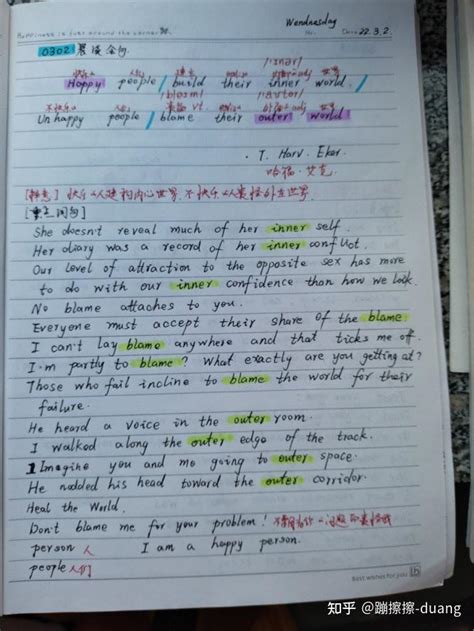 Wendnesday
Happiness is just around the corner No. Date 22.3.2.
0302 晨读金句.
快乐的 人们 建造 他们的 内心的adj 世界
Happy people / build their inner world.
不快乐的 责备 vt. 他们的 外部的adj 世界
Unhappy people / blame their outer world.
· T. Harv. Eker.
哈福·艾克
[释意] 快乐的人建构内心世界, 不快乐的人责怪外在世界.
[重点词句]
She doesn't reveal much of her inner self.
Her diary was a record of her inner conflict.
Our level of attraction to the opposite sex has more
to do with our inner confidence than how we look.
No blame attaches to you.
Everyone must accept their share of the blame
I can't lay blame anywhere and that ticks me off.
I'm partly to blame? What exactly are you getting at?
Those who fail incline to blame the world for their
failure.
He heard a voice in the outer room.
I walked along the outer edge of the track.
Imagine you and me going to outer space.
He nodded his head toward the outer corridor.
Heal the World.
Don't blame me for your problem!
person 人 I am a happy person.
people 人们
Best wishes for you
知乎 @蹦擦擦-duang